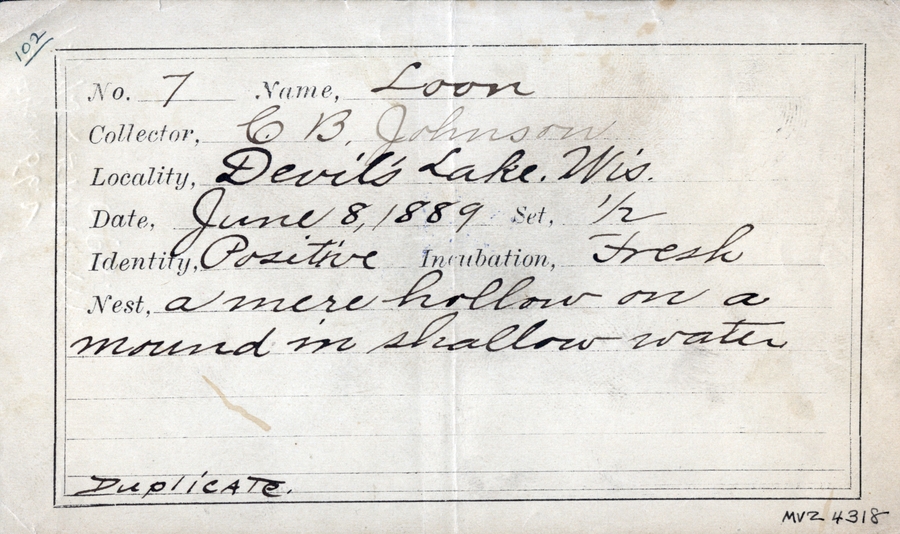 102
No. 7 Name, Loon
Collector, C B. Johnson
Locality, Devil's Lake. Wis.
Date, June 8, 1889 Set, 1/2
Identity, Positive Incubation, Fresh
Nest, a mere hollow on a
mound in shallow water
Duplicate.
MVZ 4318